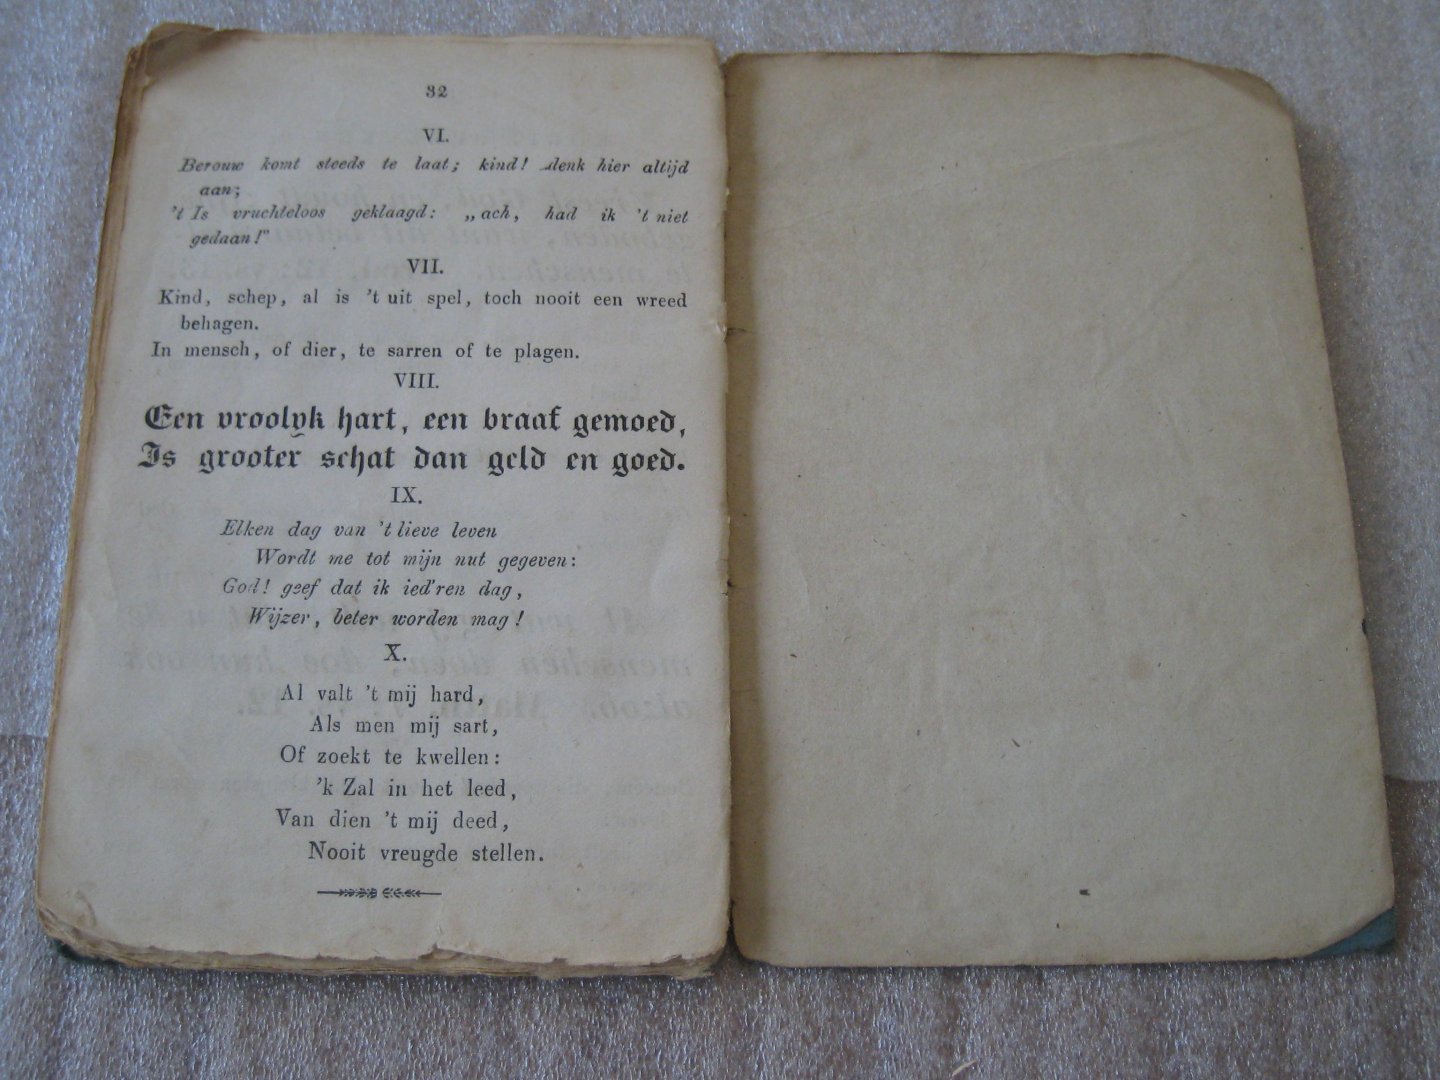 32
VI.
Berouw komt steeds te laat; kind! denk hier altijd
aan;
't Is vruchteloos geklaagd: „ach, had ik 't niet
gedaan!"
VII.
Kind, schep, al is 't uit spel, toch nooit een wreed
behagen.
In mensch, of dier, te sarren of te plagen.
VIII.
Een vroolyk hart, een braaf gemoed,
Is grooter schat dan geld en goed.
IX.
Elken dag van 't lieve leven
Wordt me tot mijn nut gegeven:
God! geef dat ik ied'ren dag,
Wijzer, beter worden mag!
X.
Al valt 't mij hard,
Als men mij sart,
Of zoekt te kwellen:
'k Zal in het leed,
Van dien 't mij deed,
Nooit vreugde stellen.